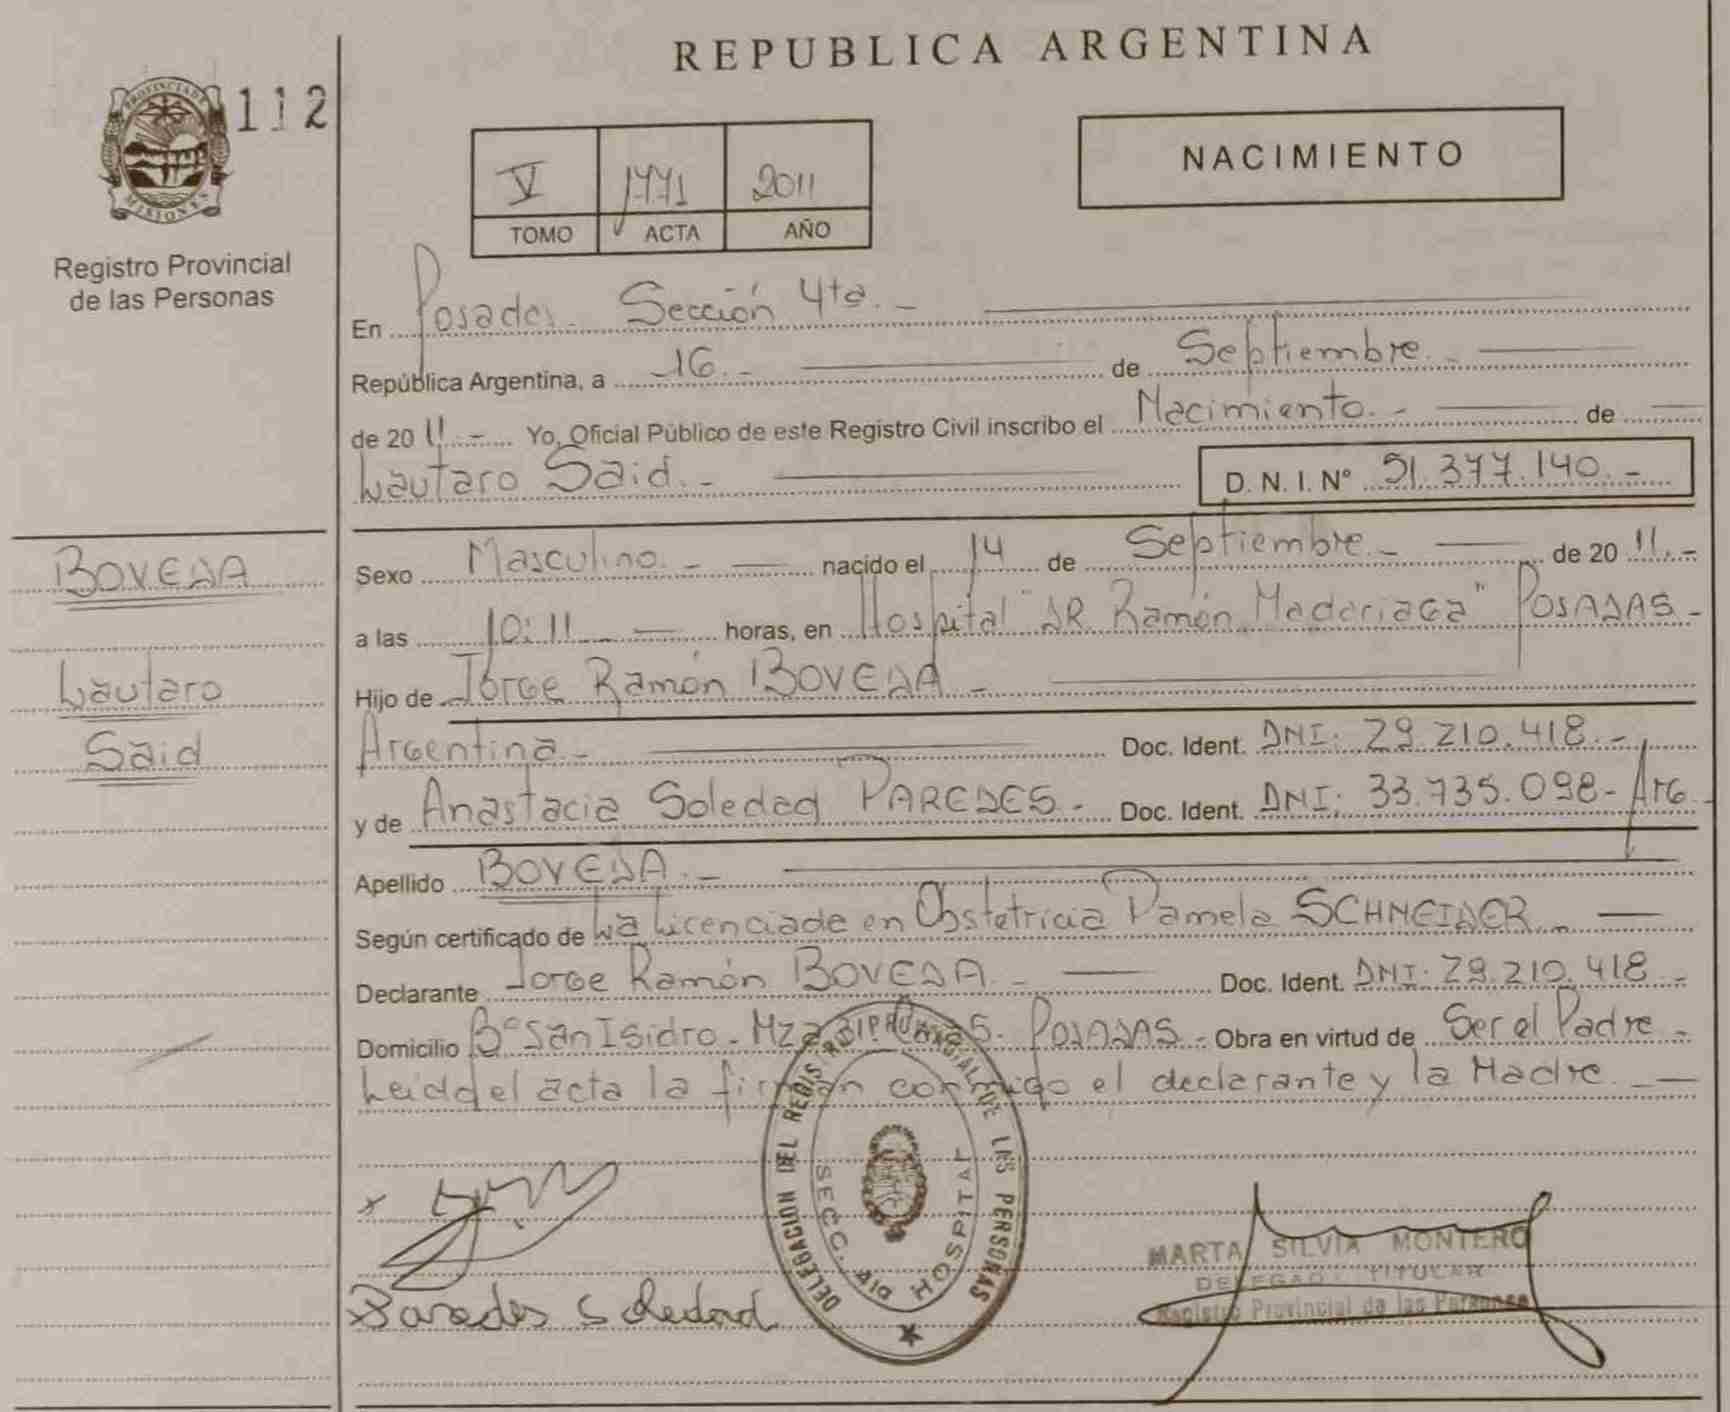 REPUBLICA ARGENTINA
PROVINCIA DE
MISIONES
112
Registro Provincial
de las Personas
V 1771 2011
TOMO ACTA AÑO
NACIMIENTO
En Posadas. Sección 4ta.-
República Argentina, a 16.- de Septiembre.-
de 2011.- Yo, Oficial Público de este Registro Civil inscribo el Nacimiento.- de
Lautaro Said.- D. N. I. Nº 51.377.140.-
BOVEDA
Lautaro
Said
Sexo Masculino.- nacido el 14 de Septiembre.- de 2011.-
a las 10:11.- horas, en Hospital "DR Ramón Madariaga" POSADAS-
Hijo de Jorge Ramón BOVEDA-
Argentina.- Doc. Ident. DNI: 29.210.418.-
y de Anastacia Soledad PAREDES- Doc. Ident. DNI: 33.735.098-Arg.-
Apellido BOVEDA.-
Según certificado de La Licenciada en Obstetricia Pamela SCHNEIDER.-
Declarante Jorge Ramón BOVEDA.- Doc. Ident. DNI: 29.210.418-
Domicilio Bº San Isidro. Mza POSADAS- Obra en virtud de Ser el Padre-
Leida el acta la firman conmigo el declarante y la Madre.-
DELEGACION DEL REGISTRO PROVINCIAL DE LAS PERSONAS
SECC. 4ta HOSPITAL
Paredes Soledad
MARTA SILVIA MONTERO
DELEGADA TITULAR
Registro Provincial de las Personas